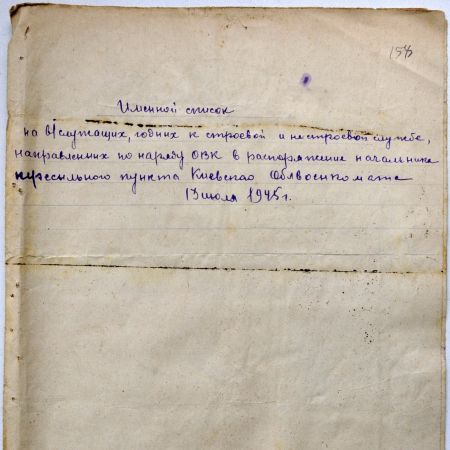 158
Именной список
на в/служащих, годных к строевой и нестроевой службе,
направленных по наряду ОВК в распоряжение начальника
пересыльного пункта Киевского Облвоенкомата
13 июля 1945 г.